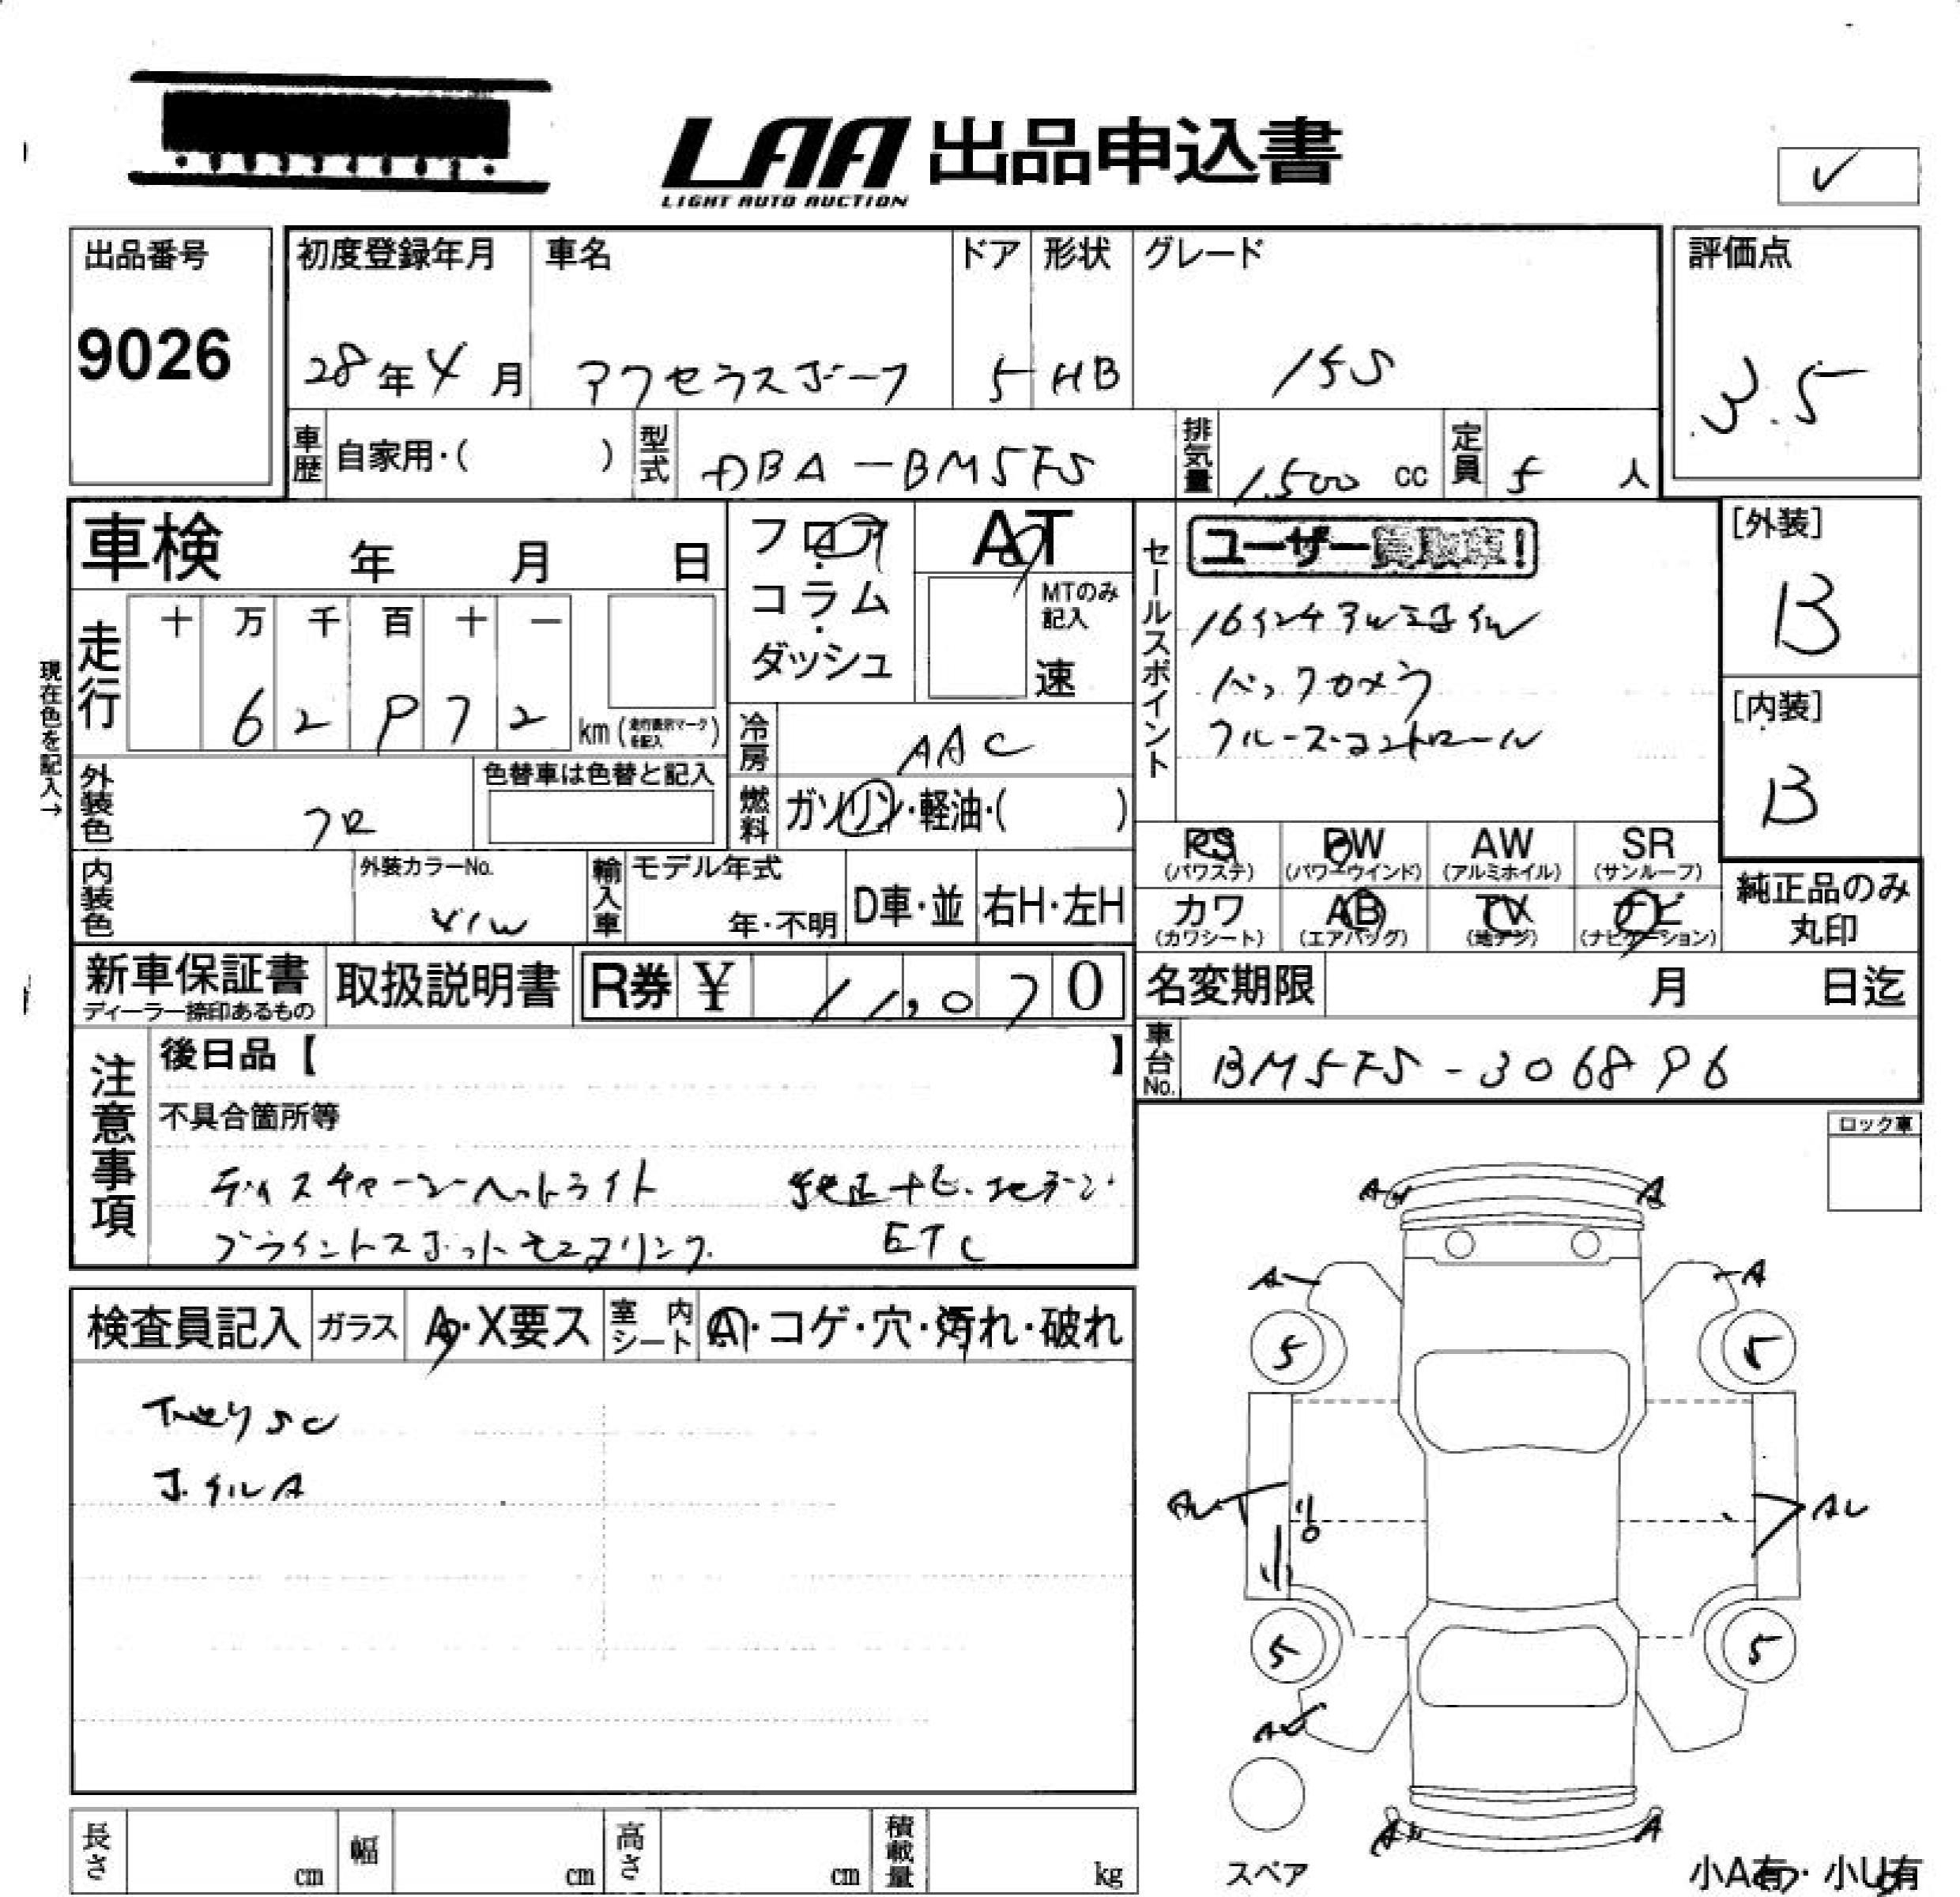 LAA 出品申込書
LIGHT AUTO AUCTION
✓
出品番号
9026
初度登録年月
28年4月
車名
アクセラスポーツ
ドア
5
形状
HB
グレード
15S
評価点
3.5
車歴 自家用・( )
型式 DBA-BM5FS
排気量 1.500 cc
定員 5 人
車検 年 月 日
走行
十 万 千 百 十 一
6 2 9 7 2 km (走行表示マークを記入)
現在色を記入→
外装色
色替車は色替と記入
内装色
外装カラーNo.
輸入車
モデル年式
年・不明
D車・並
右H・左H
フロア・コラム・ダッシュ
AT
MTのみ記入
速
冷房 AAC
燃料 ガソリン・軽油・( )
セールスポイント
ユーザー買取車!
16インチアルミホイル
バックカメラ
クルーズコントロール
[外装]
B
[内装]
B
PS (パワステ)
PW (パワーウインド)
AW (アルミホイル)
SR (サンルーフ)
カワ (カワシート)
AB (エアバッグ)
TV (地デジ)
ナビ (ナビゲーション)
純正品のみ丸印
新車保証書
ディーラー捺印あるもの
取扱説明書
R券 ¥ 11,070
名変期限 月 日迄
車台No. BM5FS-306896
注意事項
後日品【 】
不具合箇所等
ディスチャージヘットライト 純正ナビ・地デジ
ブラインドスポットモニタリング ETC
ロック車
検査員記入
ガラス A・X要ス
室内シート A・コゲ・穴・汚れ・破れ
ホイルA
A
A
A
5
5
AU
5
5
A
スペア
小A有・小U有
長さ cm
幅 cm
高さ cm
積載量 kg